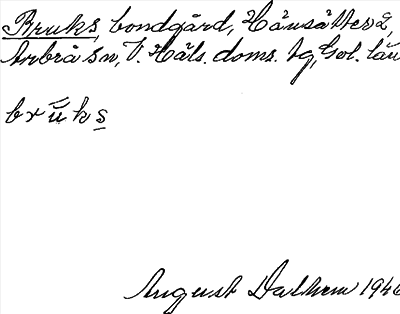 Bruks, bondgård, Hänsätter 2,
Arbrå sn, V. Häls. doms. tg, Gvl. län
brūks
August Dalhem 1946